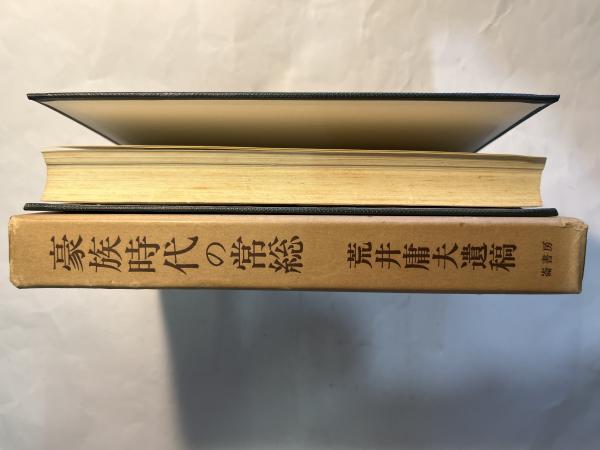 豪族時代の常総
荒井庸夫遺稿
崙書房